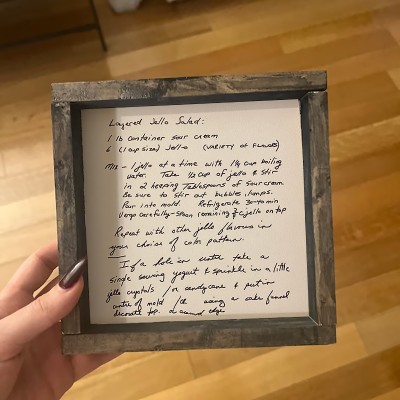 Layered Jello Salad:
1 lb container sour cream
6 (1 cup size) Jello (VARIETY OF FLAVORS)
Mix - 1 jello at a time with 1 1/4 cup boiling
water. Take 1/2 cup of jello & stir
in 2 heaping Tablespoons of sour cream
Be sure to stir out bubbles, lumps.
Pour into mold. Refrigerate 30 min
Very carefully - spoon remaining jello on top
Repeat with other jello flavours in
your choice of color pattern.
If a hole in centre take a
single serving yogurt & sprinkle in a little
jello crystals / or candy cane & put in
centre of mold / using a cake funnel
decorate top. around edge